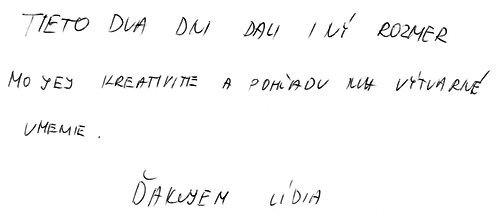 TIETO DVA DNI DALI INÝ ROZMER
MOJEJ KREATIVITE A POHĽADU NA VÝTVARNÉ
UMENIE.
ĎAKUJEM LÍDIA